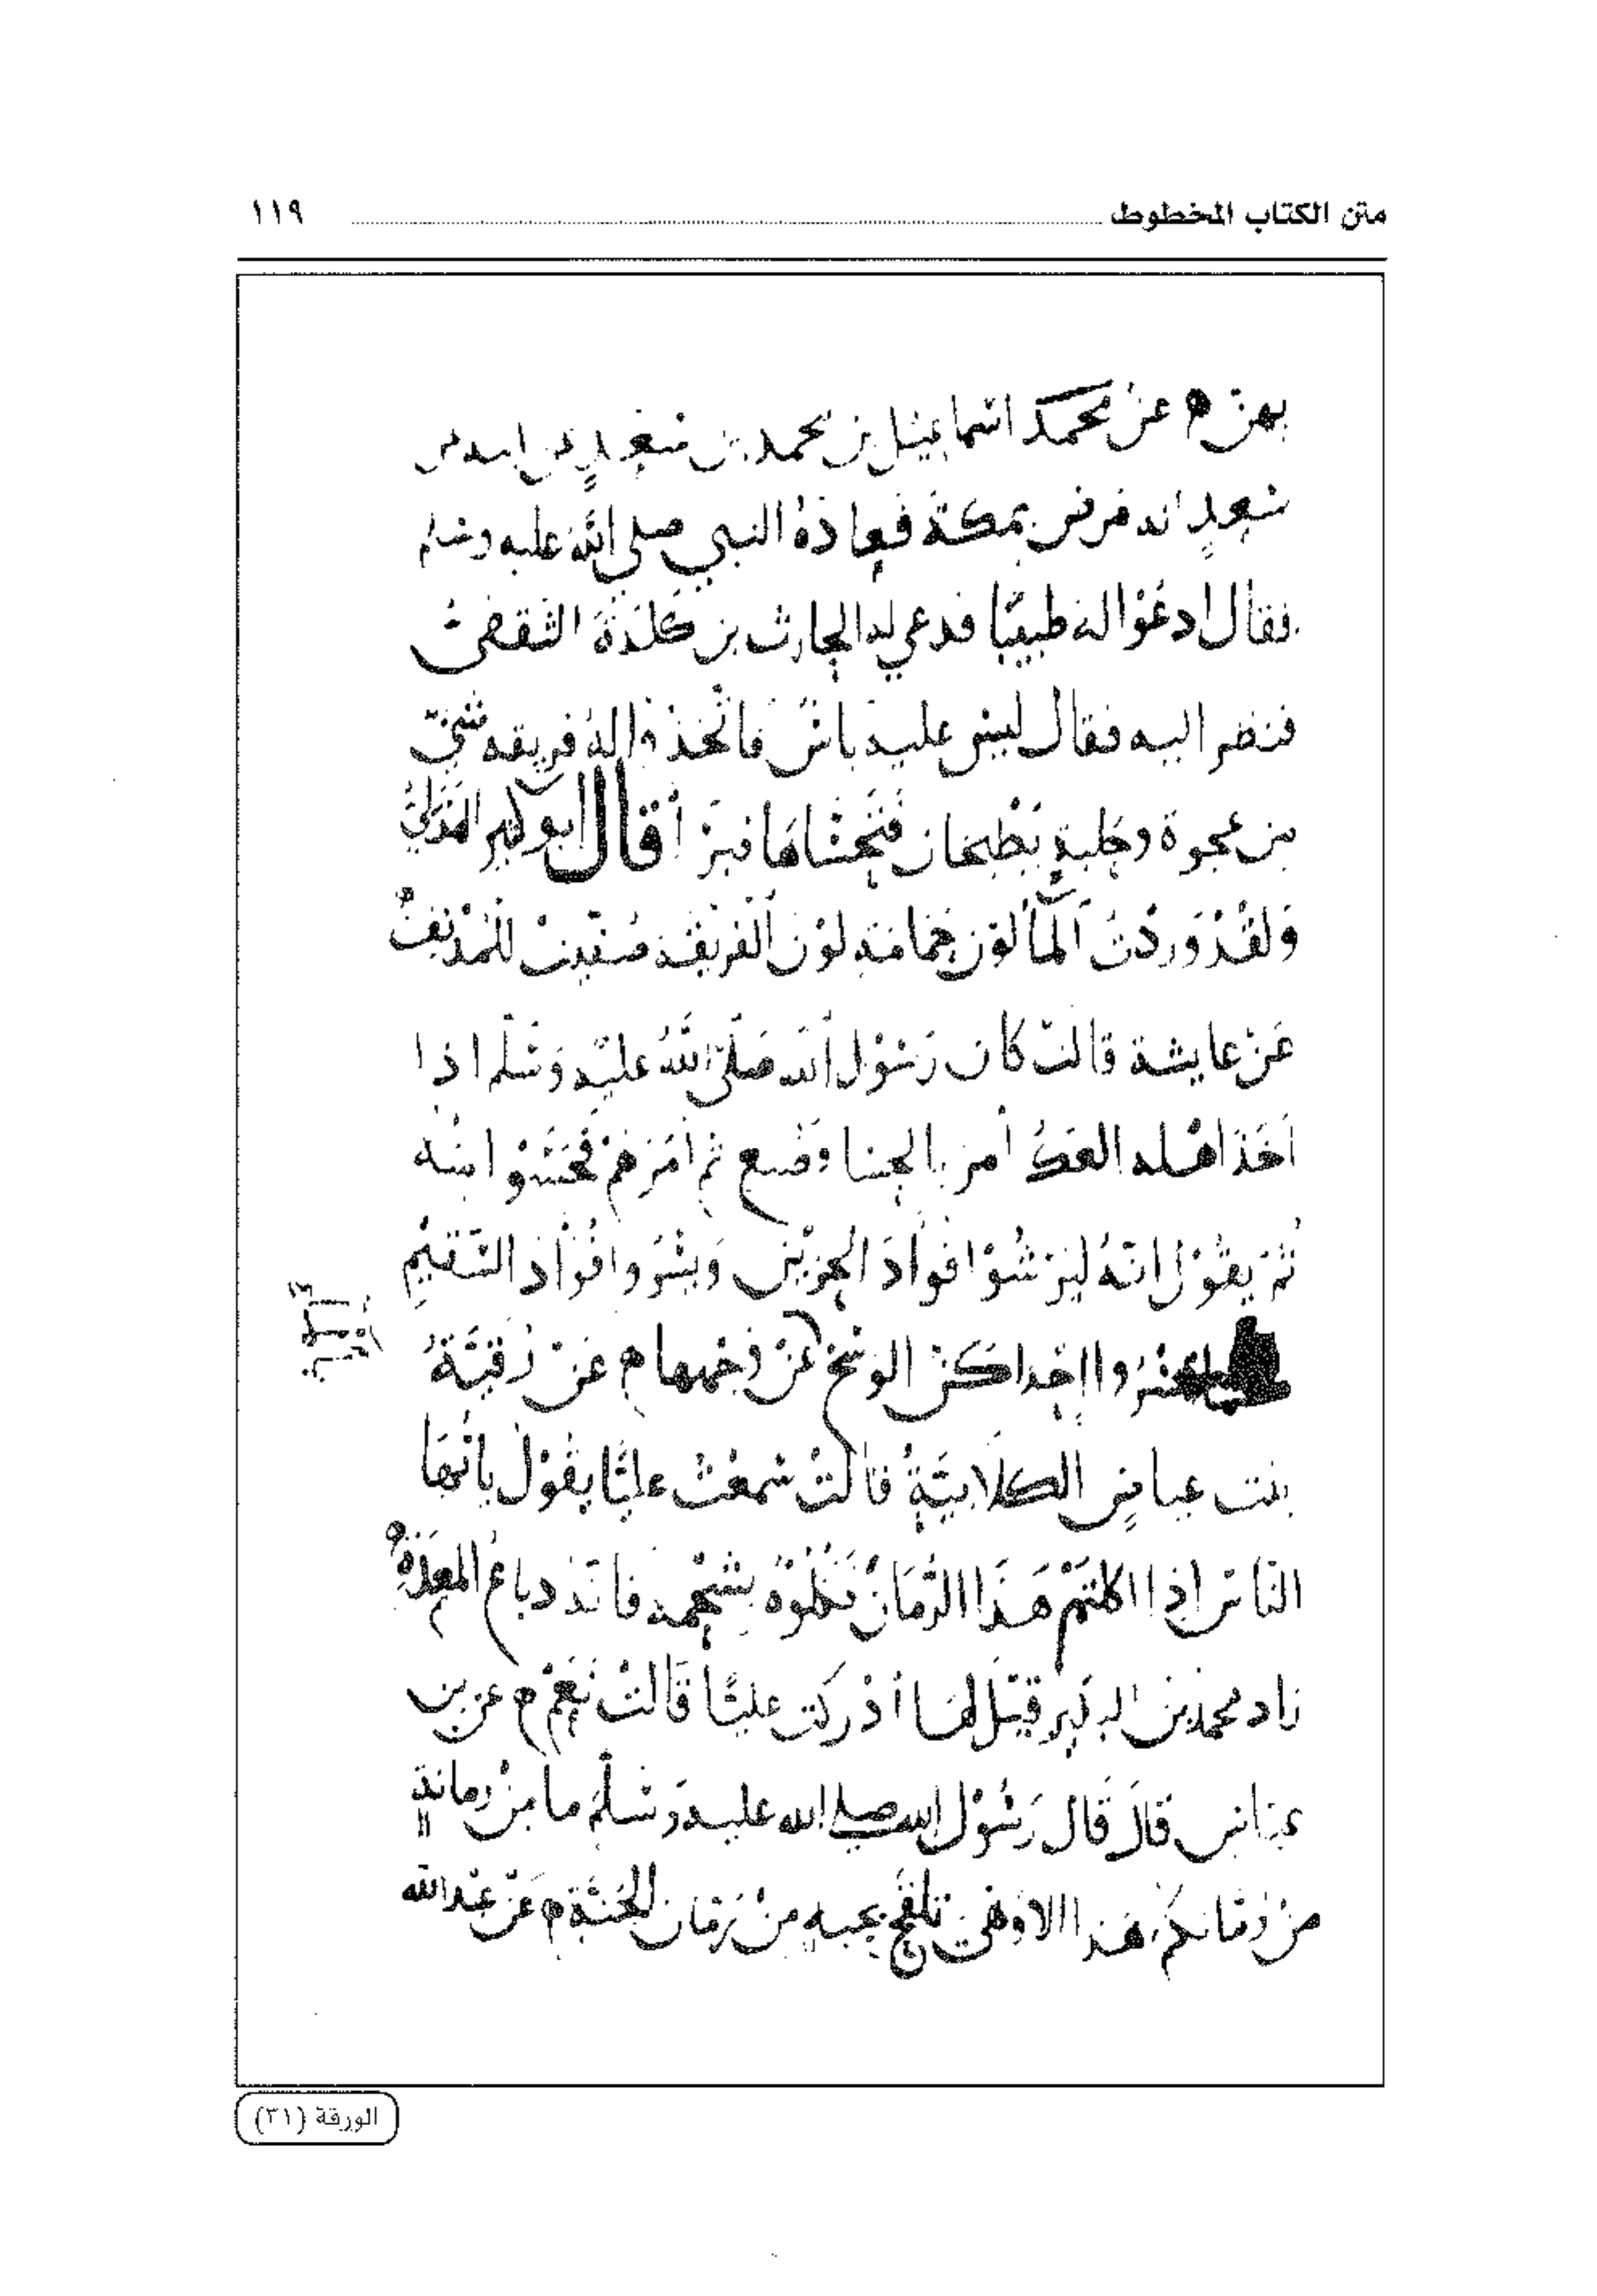 متن الكتاب المخطوط ١١٩
بهن ه عن محمد اسماعيل بن محمد بن سعد عن ابيه عن
سعد انه مرض بمكة فعاده النبي صلى الله عليه وسلم
فقال ادعوا له طبيبا فدعي له الحارث بن كلدة الثقفي
فنظر اليه فقال ليس عليه باس فاتخذوا له فريقه شي
من عجوة وحلبة يطبخان فتحساها فبرأ قال ابو كبير الهذلي
ولقد وردت الما لون جمامه لون الفريقة صفيت للمدنف
عن عايشة قالت كان رسول الله صلى الله عليه وسلم اذا
اخذ اهله الوعك امر بالحسا فصنع ثم امرهم فحسوا منه
ثم يقول انه ليرتوا فواد الحزين ويسروا فواد السقيم
احداكن الوسخ عن وجهها ه عن رقية
بنت عياض الكلابية قالت سمعت عليا يقول يا ايها
الناس اذا اكلتم هذا الرمان فكلوه بشحمه فانه دباغ المعدة
زاد محمد بن قيل لها أدركت عليا قالت نعم ه عن بن
عباس قال قال رسول الله صلى الله عليه وسلم ما من رمانة
من رمانكم هذا الا وهي تلقح بحبه من رمان الجنة ه عن عبد الله
الورقة (٣١)